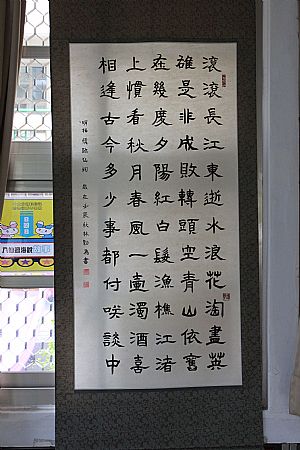 滾滾長江東逝水浪花淘盡英
雄是非成敗轉頭空青山依舊
在幾度夕陽紅白髮漁樵江渚
上慣看秋月春風一壺濁酒喜
相逢古今多少事都付咲談中
歲在壬辰秋林